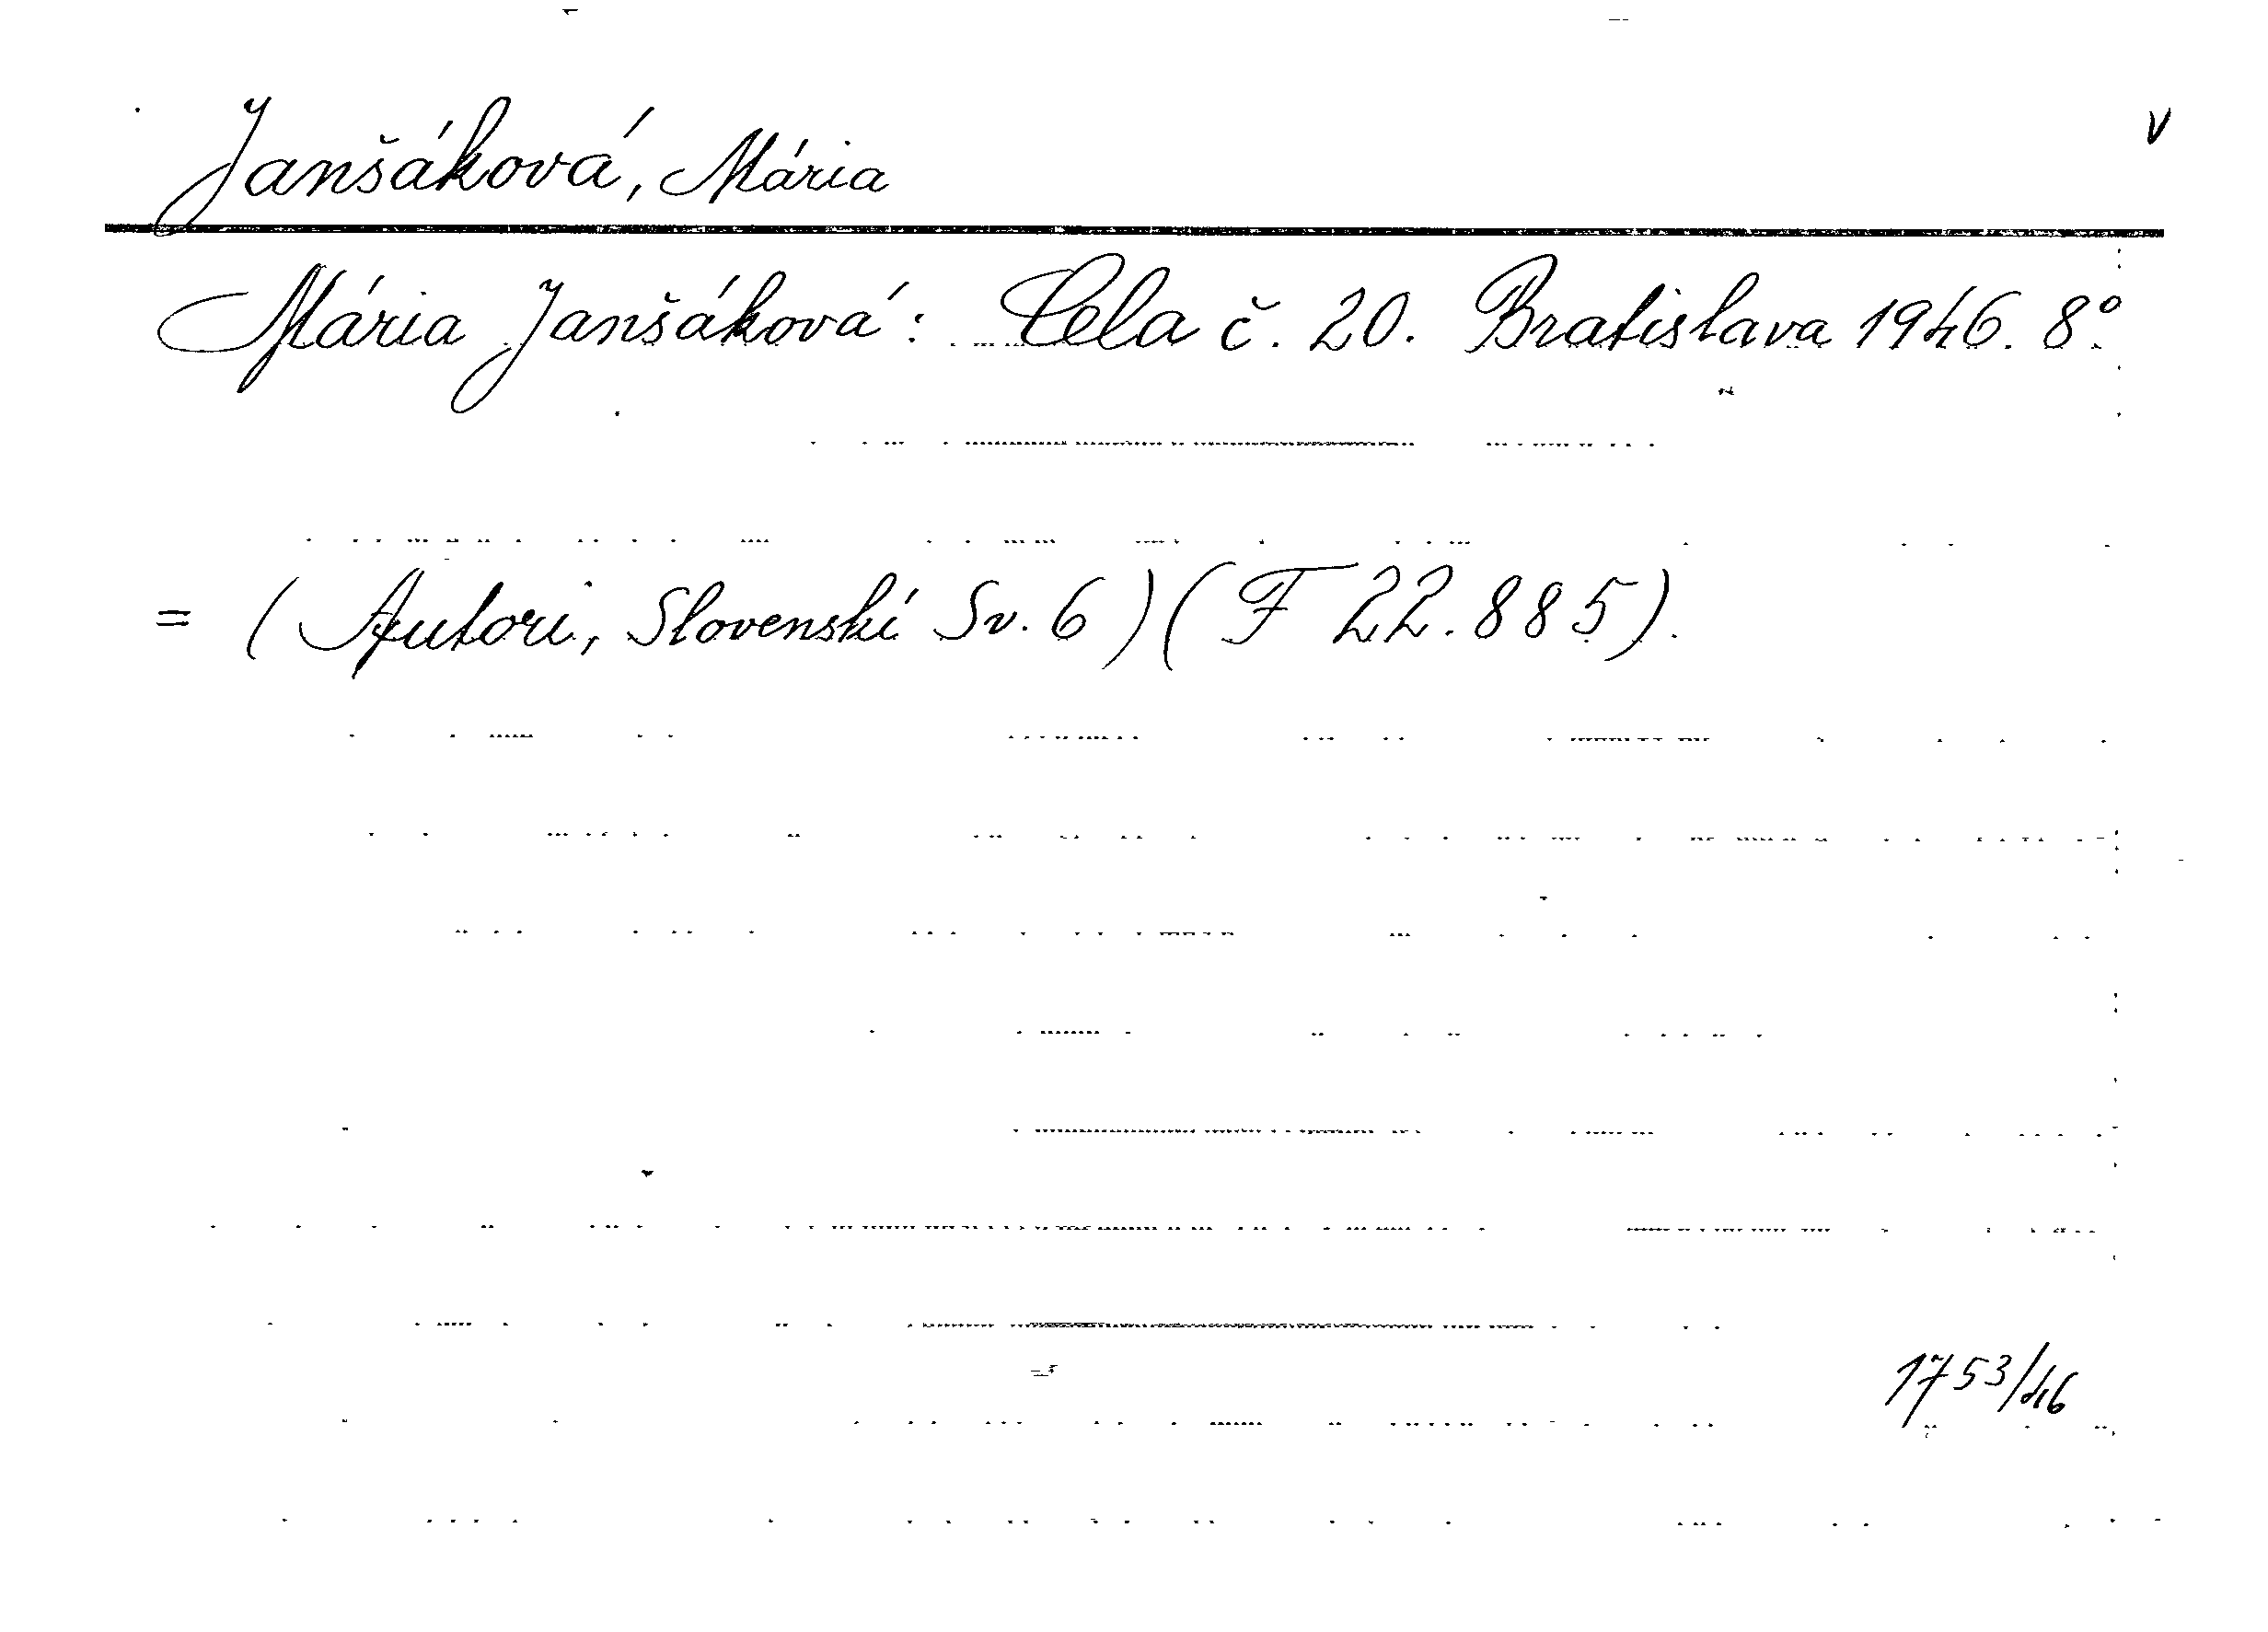 Janšáková, Mária
v
Mária Janšáková: Cela č. 20. Bratislava 1946. 8°.
= (Autori, Slovenskí Sv. 6) (F 22.885).
1753/46